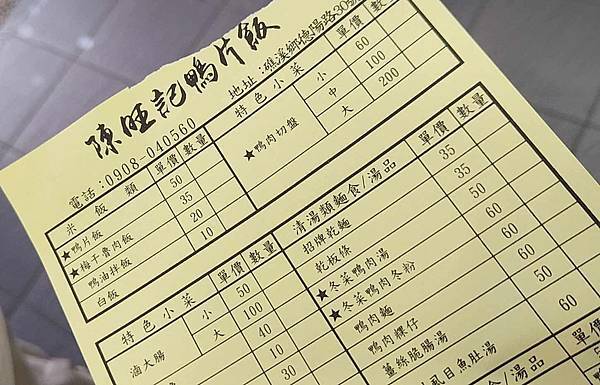 陳旺記鴨片飯
電話:0908-040560
地址:礁溪鄉德陽路30號
米飯類 單價 數量
★鴨片飯 50
★梅干魯肉飯 35
鴨油拌飯 20
白飯 10
特色小菜 單價 數量
滷大腸 小 50
大 100
40
10
30
特色小菜 單價 數量
★鴨肉切盤 小 60
中 100
大 200
清湯類麵食/湯品 單價 數量
招牌乾麵 35
乾板條 35
★冬菜鴨肉湯 50
★冬菜鴨肉冬粉 60
鴨肉麵 60
鴨肉粿仔 60
薑絲脆腸湯 50
虱目魚肚湯 60
/湯品 單價